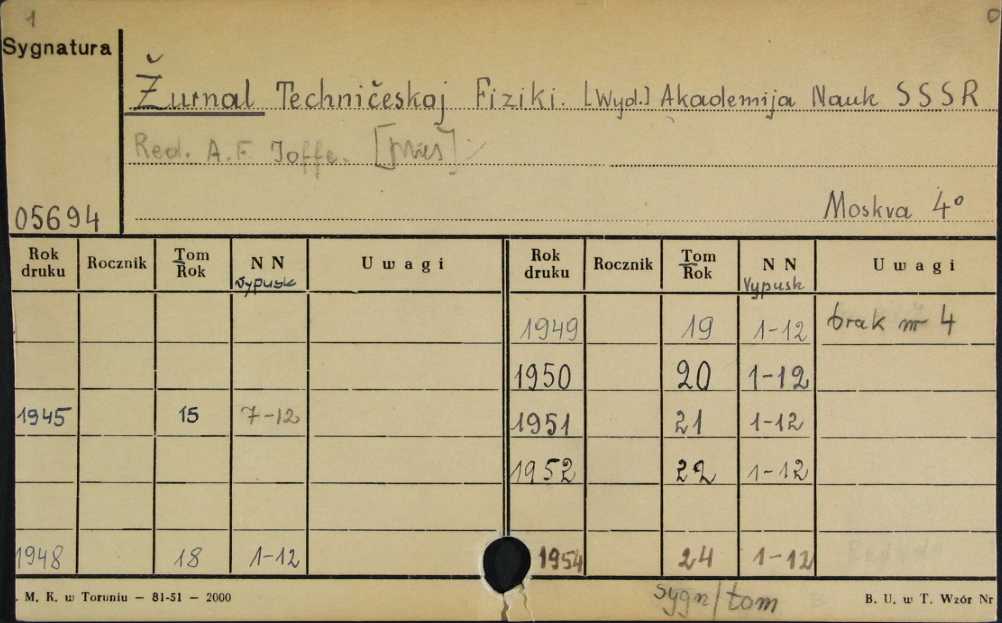 1
Sygnatura
Žurnal Techničeskoj Fiziki. [Wyd.] Akademija Nauk SSSR
Red. A.F. Joffe.
Moskva 4°
05694
Rok druku Rocznik Tom Rok NN Vypusk Uwagi Rok druku Rocznik Tom Rok NN Vypusk Uwagi
1949 19 1-12 brak nr 4
1950 20 1-12
1945 15 7-12 1951 21 1-12
1952 22 1-12
1948 18 1-12 1954 24 1-12
sygn/tom
. M. K. w Toruniu — 81-51 — 2000 B. U. w T. Wzór Nr